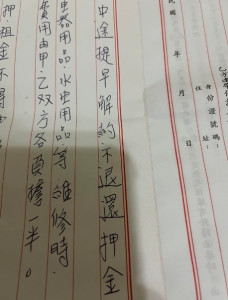 乙方
身份證號碼：
住址：
民國　年　月　日
中途提早解約不退還押金
電器用品．水电用品．等維修時．
費用由甲．乙双方各負擔一半。
押．租金不得